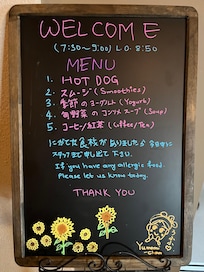 WELCOME
(7:30~9:00) L.O. 8:50
MENU
1. HOT DOG
2. スムージー (Smoothies)
3. 季節のヨーグルト (Yogurt)
4. 旬野菜のコンソメスープ (Soup)
5. コーヒー/紅茶 (Coffee/Tea)
にがてな食材がありましたら今日中に
スタッフまで申し出て下さい。
If you have any allergic food.
Please let us know today.
THANK YOU